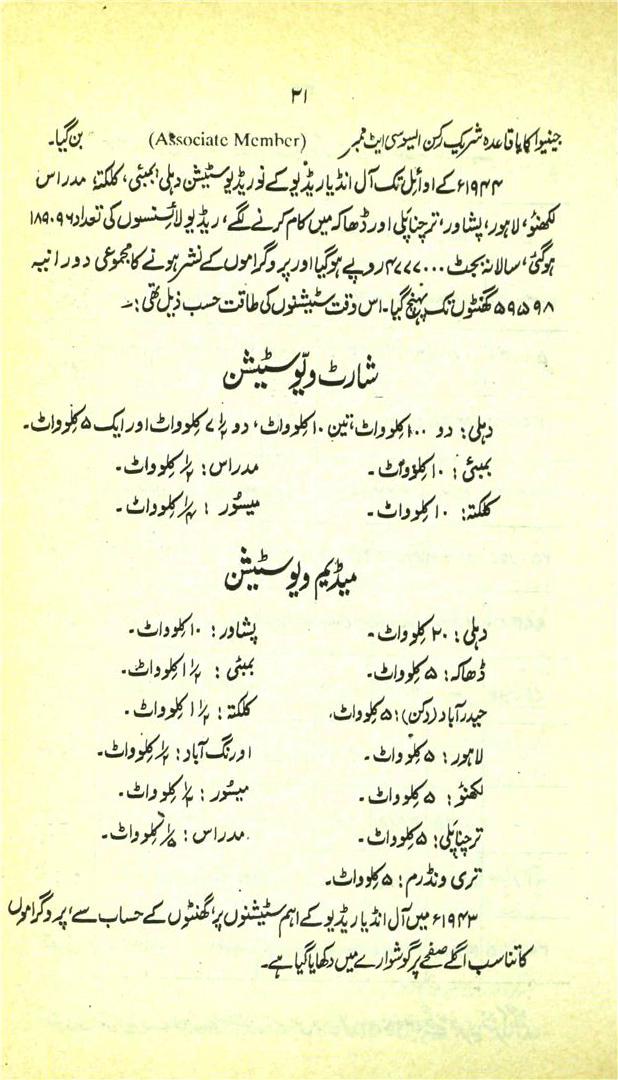 ۲۱
جینیوا کا باقاعدہ شریک رکن ایسوسی ایٹ ممبر (Associate Member) بن گیا۔
۱۹۴۴ء کے اوائل تک آل انڈیا ریڈیو کے نو ریڈیو سٹیشن دہلی، بمبئی، کلکتہ، مدراس
لکھنؤ، لاہور، پشاور، ترچناپلی اور ڈھاکہ میں کام کرنے لگے، ریڈیو لائسنسوں کی تعداد ۱۸۹۰۹۶
ہو گئی، سالانہ بجٹ ۴۷۷۷۰۰۰ روپے ہو گیا اور پروگراموں کے نشر ہونے کا مجموعی دورانیہ
۵۹۵۹۸ گھنٹوں تک پہنچ گیا۔ اس وقت سٹیشنوں کی طاقت حسب ذیل تھی:۔
شارٹ ویو سٹیشن
دہلی: دو ۱۰۰ کلوواٹ، تین ۱۰ کلوواٹ، دو ۷ ۱/۲ کلوواٹ اور ایک ۵ کلوواٹ۔
بمبئی: ۱۰ کلوواٹ۔ مدراس: ۱/۲ کلوواٹ۔
کلکتہ: ۱۰ کلوواٹ۔ میسور: ۱/۴ کلوواٹ۔
میڈیم ویو سٹیشن
دہلی: ۲۰ کلوواٹ۔ پشاور: ۱۰ کلوواٹ۔
ڈھاکہ: ۵ کلوواٹ۔ بمبئی: ۱ ۱/۲ کلوواٹ۔
حیدرآباد (دکن): ۵ کلوواٹ، کلکتہ: ۱ ۱/۲ کلوواٹ۔
لاہور: ۵ کلوواٹ۔ اورنگ آباد: ۱/۲ کلوواٹ۔
لکھنؤ: ۵ کلوواٹ۔ میسور: ۱/۲ کلوواٹ۔
ترچناپلی: ۵ کلوواٹ۔ مدراس: کلوواٹ۔
تری ونڈرم: ۵ کلوواٹ۔
۱۹۴۳ء میں آل انڈیا ریڈیو کے اہم سٹیشنوں پر، گھنٹوں کے حساب سے، پروگراموں
کا تناسب اگلے صفحے پر گوشوارے میں دکھایا گیا ہے۔